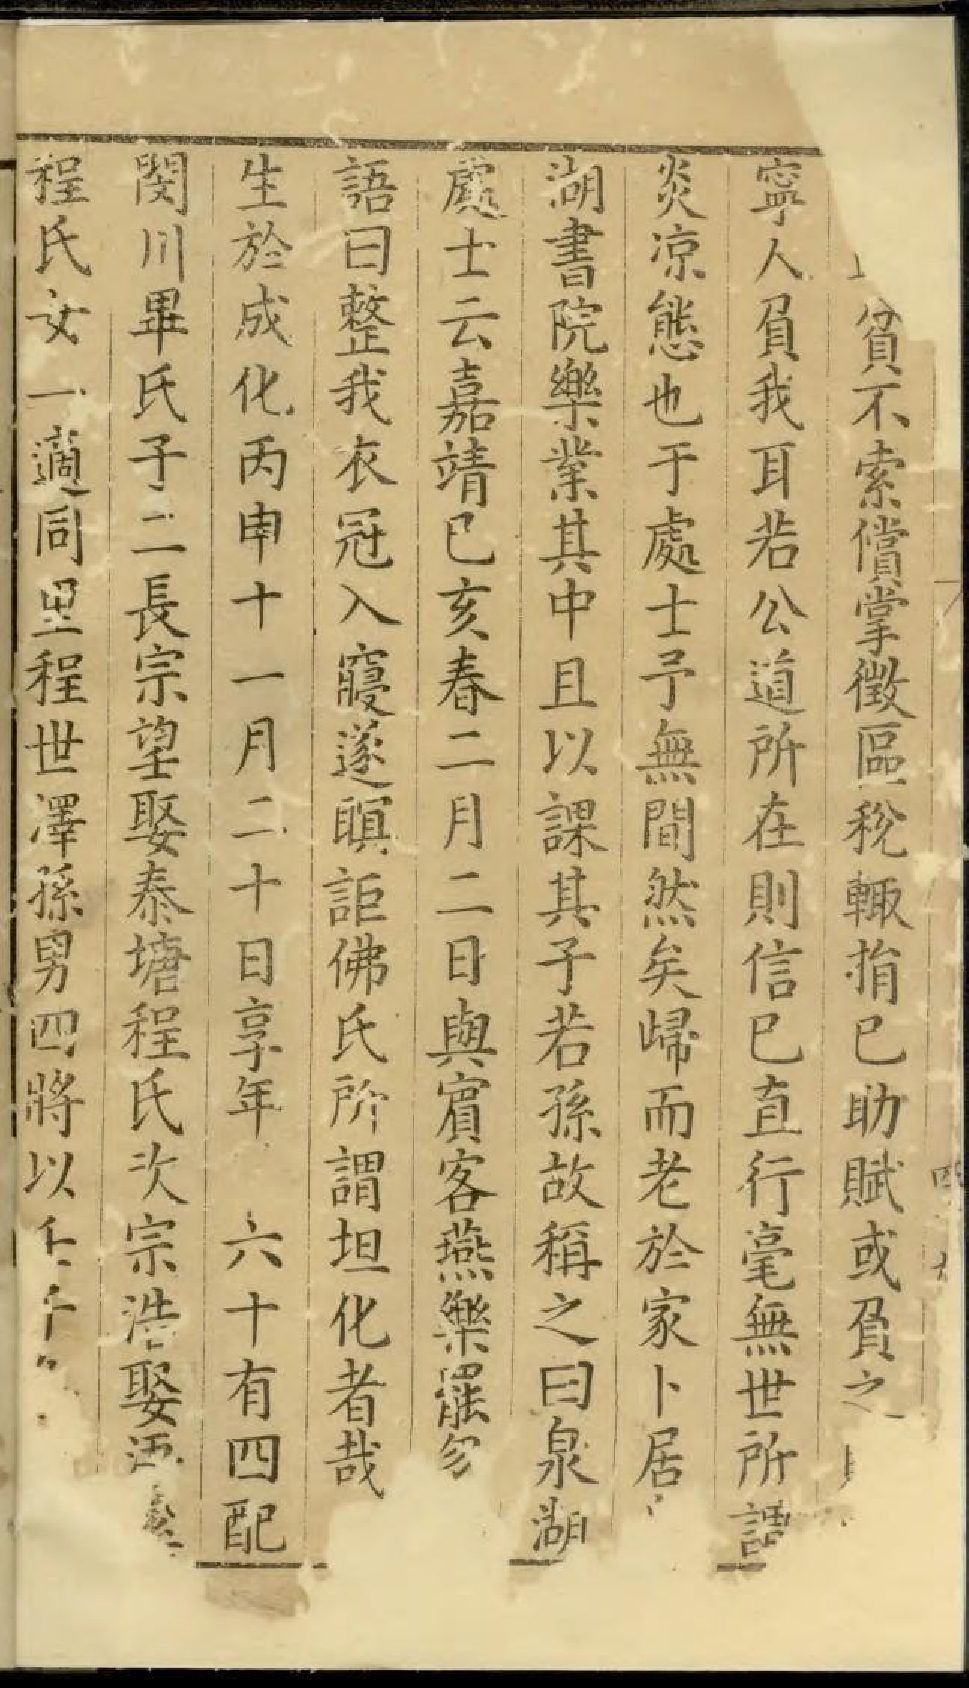 貧不索償掌徵區稅輙捐已助賦或負之
寧人負我耳若公道所在則信已直行毫無世所謂
炎凉態也于處士予無間然矣歸而老於家卜居
湖書院樂業其中且以課其子若孫故稱之曰泉湖
處士云嘉靖已亥春二月二日與賓客燕樂罷勿
語曰整我衣冠入寢遂瞑詎佛氏所謂坦化者哉
生於成化丙申十一月二十日享年 六十有四配
閔川畢氏子二長宗望娶泰塘程氏次宗浩娶
程氏女一適同里程世澤孫男四將以